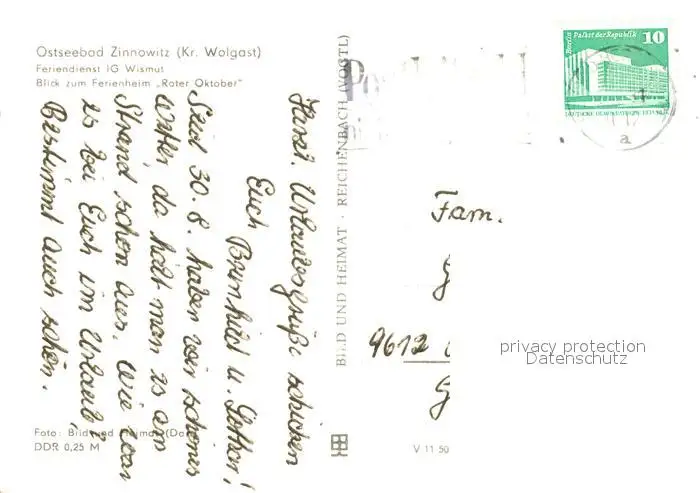 Ostseebad Zinnowitz (Kr. Wolgast)
Feriendienst IG Wismut
Blick zum Ferienheim „Roter Oktober"
Herzl. Urlaubsgrüße schicken
Euch Brunhild u. Lothar!
Seid 30. 8. haben wir schönes
Wetter, da hält man es am
Strand schon aus. Wie war
es bei Euch im Urlaub?
Bestimmt auch schön.
Foto: Bild und Heimat
DDR 0,25 M
BILD UND HEIMAT · REICHENBACH (VOGTL)
V 11 50
Berlin Palast der Republik 10
DEUTSCHE DEMOKRATISCHE REPUBLIK
a
Fam.
G
9612
G
privacy protection
Datenschutz